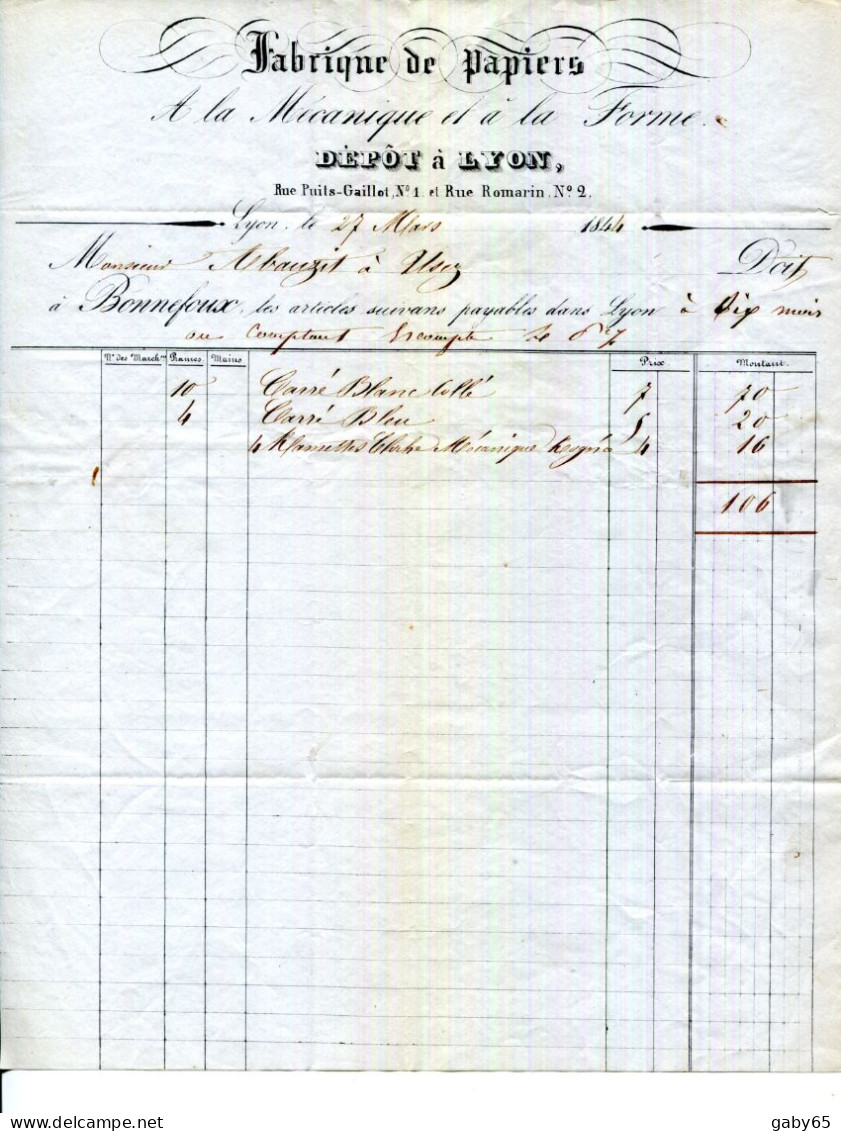 Fabrique de Papiers
A la Mécanique et à la Forme.
DÉPÔT à LYON,
Rue Puits-Gaillot, Nº 1. et Rue Romarin, Nº 2.
Lyon, le 27 Mars 1844
Monsieur Abauzit à Usez Doit
à Bonnefoux, les articles suivans payables dans Lyon à Six mois
au comptant Escompte
Nos des March.ses Rames Mains Prix Montant.
10 Carré Blanc Collé 7 70
4 Carré Bleu 5 20
4 Ramettes Cloche Mécanique Rognés 4 16
106
delcampe.net
gaby65